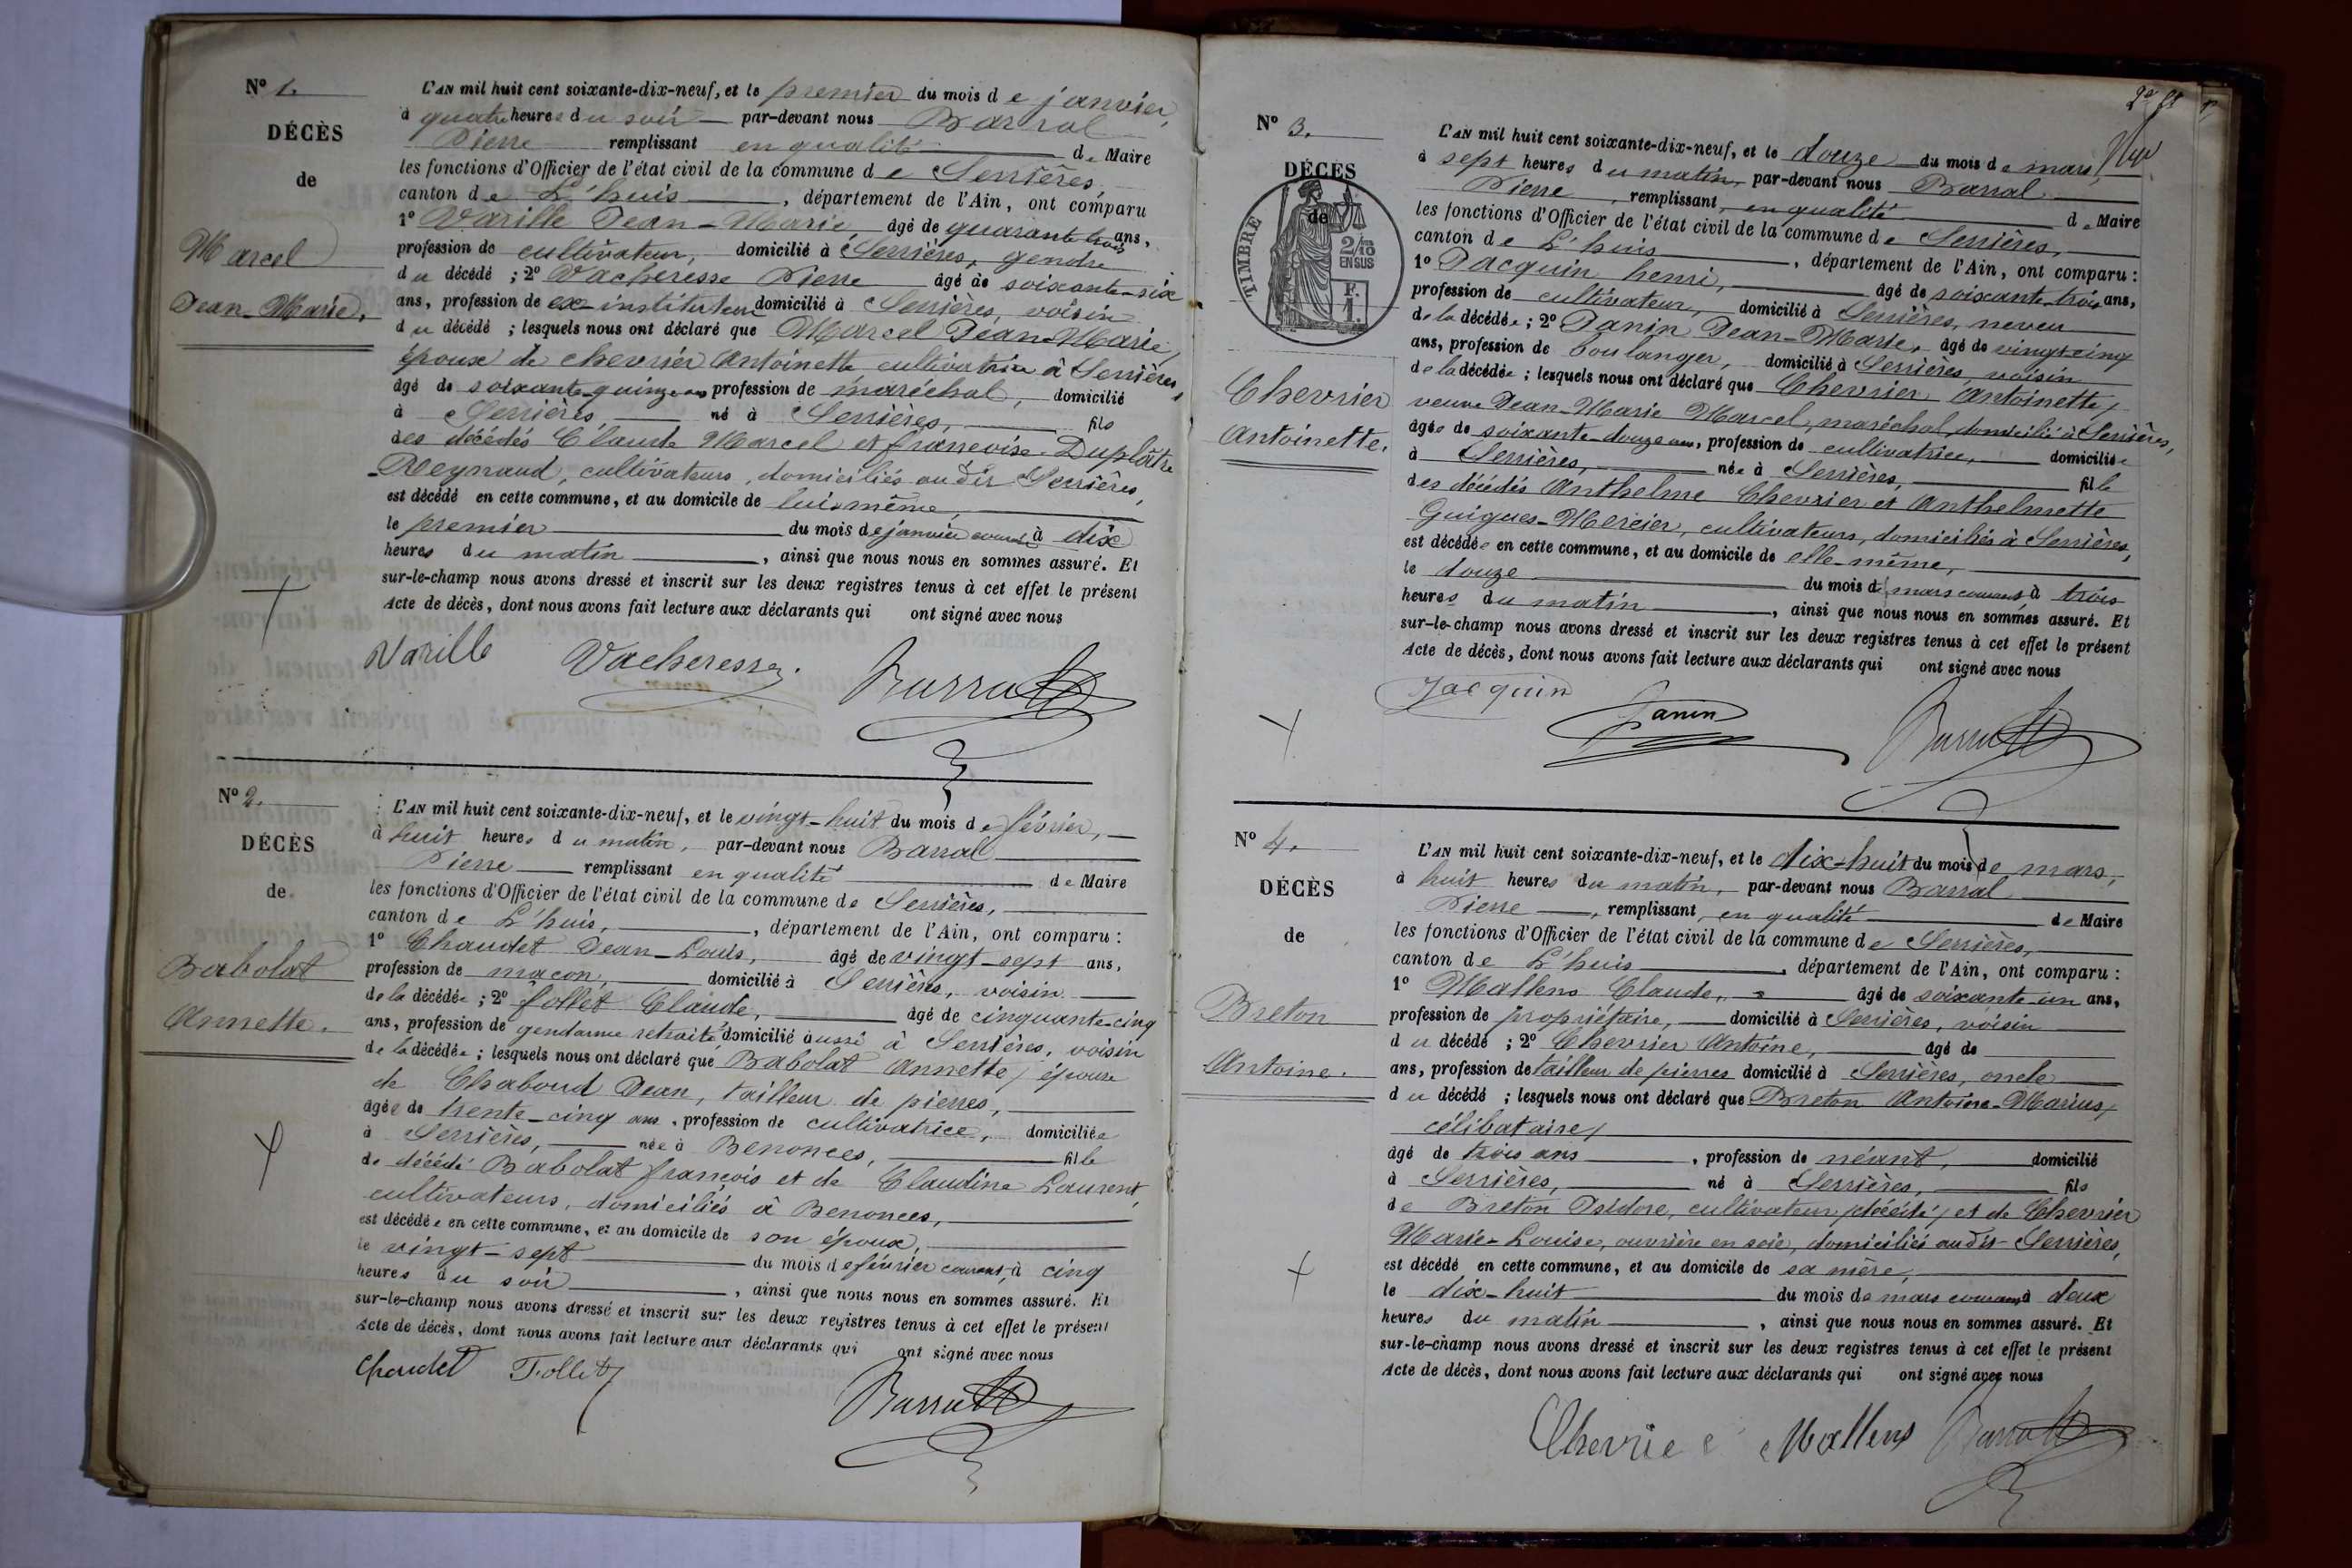 Nº 1.
DÉCÈS
de
Marcel
Jean-Marie.
L'AN mil huit cent soixante-dix-neuf, et le premier du mois de janvier,
à quatre heures du soir par-devant nous Barral
Pierre remplissant en qualité de Maire
les fonctions d'Officier de l'état civil de la commune de Serrières,
canton de L'huis, département de l'Ain, ont comparu
1º Varille Jean-Marie, âgé de quarante trois ans,
profession de cultivateur, domicilié à Serrières, gendre
du décédé ; 2º Vacheresse Pierre âgé de soixante-six
ans, profession de ex-instituteur domicilié à Serrières, voisin
du décédé ; lesquels nous ont déclaré que Marcel Jean-Marie,
époux de chevrier Antoinette cultivatrice à Serrières,
âgé de soixante-quinze ans profession de maréchal, domicilié
à Serrières, né à Serrières, fils
des décédés Claude Marcel et françoise Duplâtre
Reynaud, cultivateurs, domiciliés audit Serrières,
est décédé en cette commune, et au domicile de lui-même,
le premier du mois de janvier courant à dix
heures du matin, ainsi que nous nous en sommes assuré. Et
sur-le-champ nous avons dressé et inscrit sur les deux registres tenus à cet effet le présent
Acte de décès, dont nous avons fait lecture aux déclarants qui ont signé avec nous
Varille Vacheresse. Barral
Nº 2.
DÉCÈS
de
Babolat
Annette.
L'AN mil huit cent soixante-dix-neuf, et le vingt-huit du mois de février,
à huit heures du matin, par-devant nous Barral
Pierre remplissant en qualité de Maire
les fonctions d'Officier de l'état civil de la commune de Serrières,
canton de L'huis, département de l'Ain, ont comparu :
1º Chaudet Jean-Louis, âgé de vingt-sept ans,
profession de maçon, domicilié à Serrières, voisin
de la décédée ; 2º follet Claude, âgé de cinquante-cinq
ans, profession de gendarme retraité domicilié aussi à Serrières, voisin
de la décédée ; lesquels nous ont déclaré que Babolat Annette, épouse
de Chaboud Jean, tailleur de pierres,
âgée de trente-cinq ans, profession de cultivatrice, domiciliée
à Serrières, née à Benonces, fille
de décédé Babolat françois et de Claudine Laurent,
cultivateurs, domiciliés à Benonces,
est décédée en cette commune, et au domicile de son époux,
le vingt-sept du mois de février courant, à cinq
heures du soir, ainsi que nous nous en sommes assuré. Et
sur-le-champ nous avons dressé et inscrit sur les deux registres tenus à cet effet le présent
Acte de décès, dont nous avons fait lecture aux déclarants qui ont signé avec nous
Chaudet Follet Barral
Nº 3.
DÉCÈS
de
TIMBRE
2/10
EN SUS
F.
1.
Chevrier
Antoinette.
L'AN mil huit cent soixante-dix-neuf, et le douze du mois de mars,
à sept heures du matin, par-devant nous Barral
Pierre, remplissant en qualité de Maire
les fonctions d'Officier de l'état civil de la commune de Serrières,
canton de L'huis, département de l'Ain, ont comparu :
1º Jacquin henri, âgé de soixante-trois ans,
profession de cultivateur, domicilié à Serrières, neveu
de la décédée ; 2º Janin Jean-Marie, âgé de vingt-cinq
ans, profession de boulanger, domicilié à Serrières, voisin
de la décédée ; lesquels nous ont déclaré que Chevrier Antoinette,
veuve Jean-Marie Marcel, maréchal, domicilié à Serrières,
âgée de soixante-douze ans, profession de cultivatrice, domiciliée
à Serrières, née à Serrières, fille
des décédés Anthelme Chevrier et Anthelmette
Guigues-Mercier, cultivateurs, domiciliés à Serrières,
est décédée en cette commune, et au domicile de elle-même,
le douze du mois de mars courant à trois
heures du matin, ainsi que nous nous en sommes assuré. Et
sur-le-champ nous avons dressé et inscrit sur les deux registres tenus à cet effet le présent
Acte de décès, dont nous avons fait lecture aux déclarants qui ont signé avec nous
Jacquin Janin Barral
Nº 4.
DÉCÈS
de
Breton
Antoine.
L'AN mil huit cent soixante-dix-neuf, et le dix-huit du mois de mars,
à huit heures du matin, par-devant nous Barral
Pierre, remplissant en qualité de Maire
les fonctions d'Officier de l'état civil de la commune de Serrières,
canton de L'huis, département de l'Ain, ont comparu :
1º Mallens Claude, âgé de soixante-un ans,
profession de propriétaire, domicilié à Serrières, voisin
du décédé ; 2º Chevrier Antoine, âgé de
ans, profession de tailleur de pierres domicilié à Serrières, oncle
du décédé ; lesquels nous ont déclaré que Breton Antoine-Marius,
célibataire,
âgé de trois ans, profession de néant, domicilié
à Serrières, né à Serrières, fils
de Breton Isidore, cultivateur, décédé, et de Chevrier
Marie-Louise, ouvrière en soie, domiciliés audit Serrières,
est décédé en cette commune, et au domicile de sa mère,
le dix-huit du mois de mars courant à deux
heures du matin, ainsi que nous nous en sommes assuré. Et
sur-le-champ nous avons dressé et inscrit sur les deux registres tenus à cet effet le présent
Acte de décès, dont nous avons fait lecture aux déclarants qui ont signé avec nous
Chevrie Mallens Barral